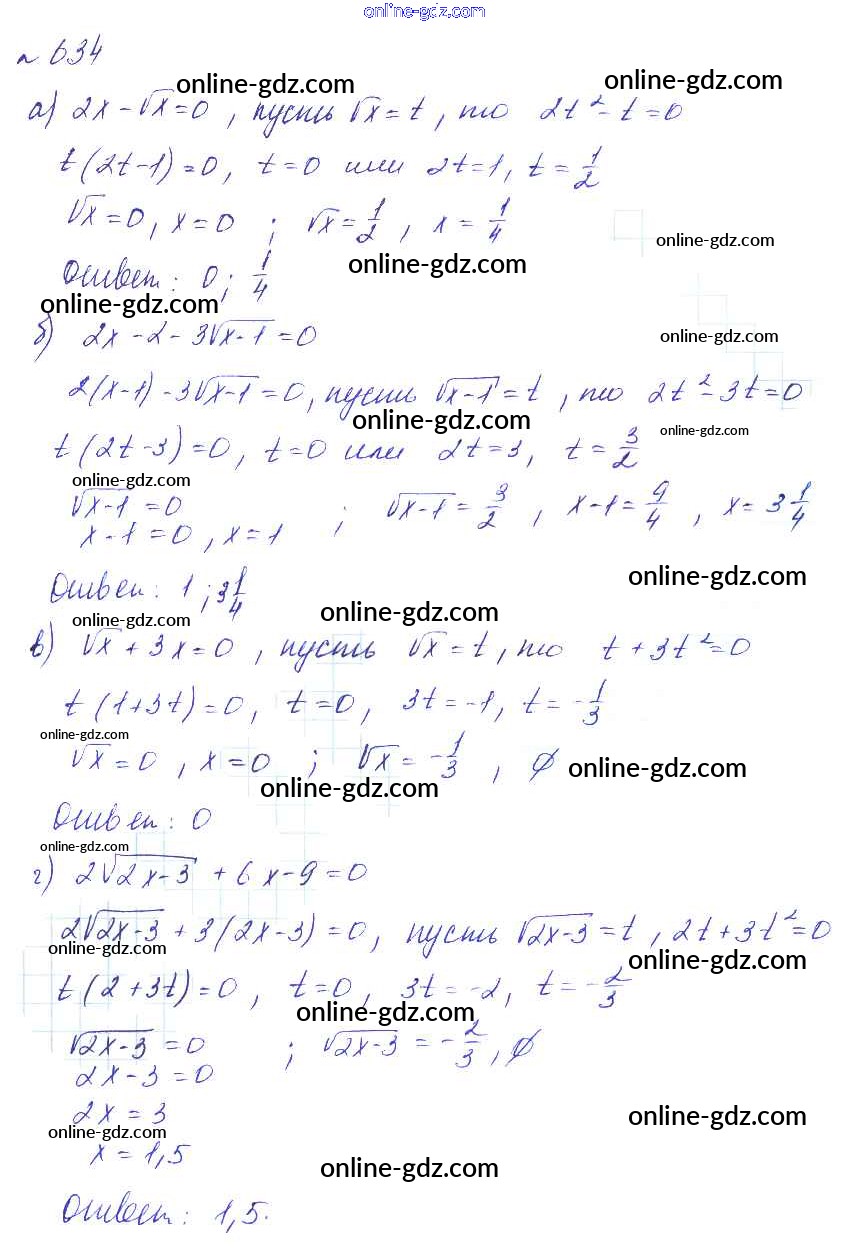 online-gdz.com
№ 634
online-gdz.com online-gdz.com
а) 2x - √x = 0, пусть √x = t, то 2t² - t = 0
t(2t-1) = 0, t = 0 или 2t = 1, t = 1/2
√x = 0, x = 0 ; √x = 1/2, x = 1/4
online-gdz.com
Ответ: 0; 1/4
online-gdz.com
online-gdz.com
б) 2x - 2 - 3√(x-1) = 0
online-gdz.com
2(x-1) - 3√(x-1) = 0, пусть √(x-1) = t, то 2t² - 3t = 0
online-gdz.com
online-gdz.com
t(2t-3) = 0, t = 0 или 2t = 3, t = 3/2
online-gdz.com
√(x-1) = 0 ; √(x-1) = 3/2, x-1 = 9/4, x = 3 1/4
x-1 = 0, x = 1
online-gdz.com
Ответ: 1; 3 1/4
online-gdz.com
online-gdz.com
в) √x + 3x = 0, пусть √x = t, то t + 3t² = 0
t(1+3t) = 0, t = 0, 3t = -1, t = -1/3
online-gdz.com
√x = 0, x = 0 ; √x = -1/3, ∅
online-gdz.com
online-gdz.com
Ответ: 0
online-gdz.com
г) 2√(2x-3) + 6x - 9 = 0
2√(2x-3) + 3(2x-3) = 0, пусть √(2x-3) = t, 2t + 3t² = 0
online-gdz.com
online-gdz.com
t(2+3t) = 0, t = 0, 3t = -2, t = -2/3
online-gdz.com
√(2x-3) = 0 ; √(2x-3) = -2/3, ∅
2x-3 = 0
2x = 3
online-gdz.com
online-gdz.com
x = 1,5
online-gdz.com
Ответ: 1,5.